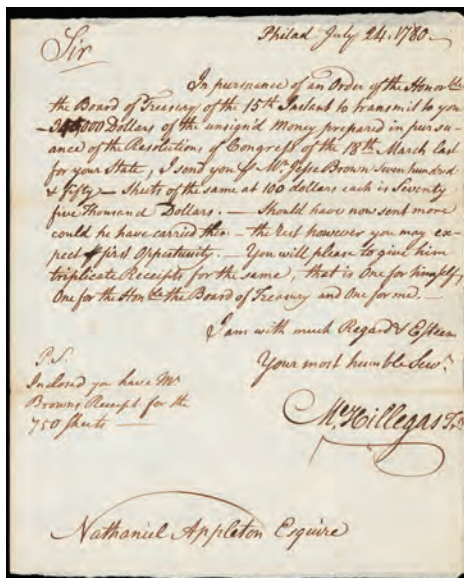 Philad July 24. 1780.
Sir
In pursuance of an Order of the Honor.ble
the Board of Treasury of the 15th Instant to transmit to you
000 Dollars of the unsign'd Money prepared in pursu-
ance of the Resolutions of Congress of the 18th March last
for your State, I send you Mr. Jesse Brown Seven hundred
& fifty — Sheets of the same at 100 dollars each is Seventy
five Thousand Dollars. — Should have now sent more
could he have carried them — the rest however you may ex-
pect first Opportunity. — You will please to give him
triplicate Receipts for the same, that is One for himself,
One for the Hon.ble the Board of Treasury and One for me. —
I am with much Regard & Esteem
Your most humble Serv.t
P.S.
Inclosed you have Mr
Browns Receipt for the
750 Sheets —
M. Hillegas Tr
Nathaniel Appleton Esquire